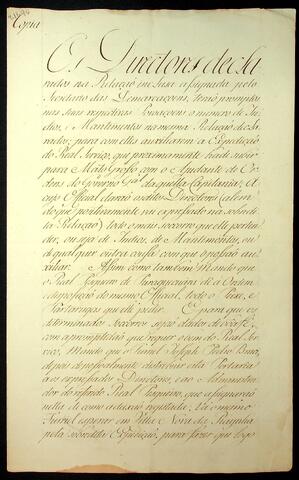 Copia
Os Directores decla
rados na Relação inclusa assignada pelo
Secretario das Demarcaçoens, terão promptos
nas suas respectivas Povoaçoens o numero de In
dios, e Mantimentos na mesma Relação de cla
rados, para com elles auxiliarem a Expedição
do Real Serviço, que proximamente hade subir
para Mato Grosso com o Ajudante de Or
dens do Governo daquella Capitania; A
cujo Official darão os ditos Directores (alem
do que pozitivamente vai expressado na sobredi
ta Relação) todo o mais socorro que elle perten
der, ou seja de Indios, de Mantimentos, ou
de qualquer outra couza com que o possão au
xiliar. Assim como tambem Mando que
o Real Pesqueiro de ponha á Ordem
e dispozição do mesmo Official, todo o Peixe, e
Tartarugas que elle pedir. E para que os
determinados Socorros sejão dados
com a promptidão que requer o bem do Real Ser
viço, Mando que o Furriel Joseph Pedro
depois de pessoalmente distribuir esta Portaria
aos expressados Directores, e ao Administra
dor do referido Real Pesqueiro, que a fiquem
nella de como a deixão registada; Vá o mesmo
Furriel esperar em Villa Nova da Rainha
pela sobredita Expedição, para fazer que logo